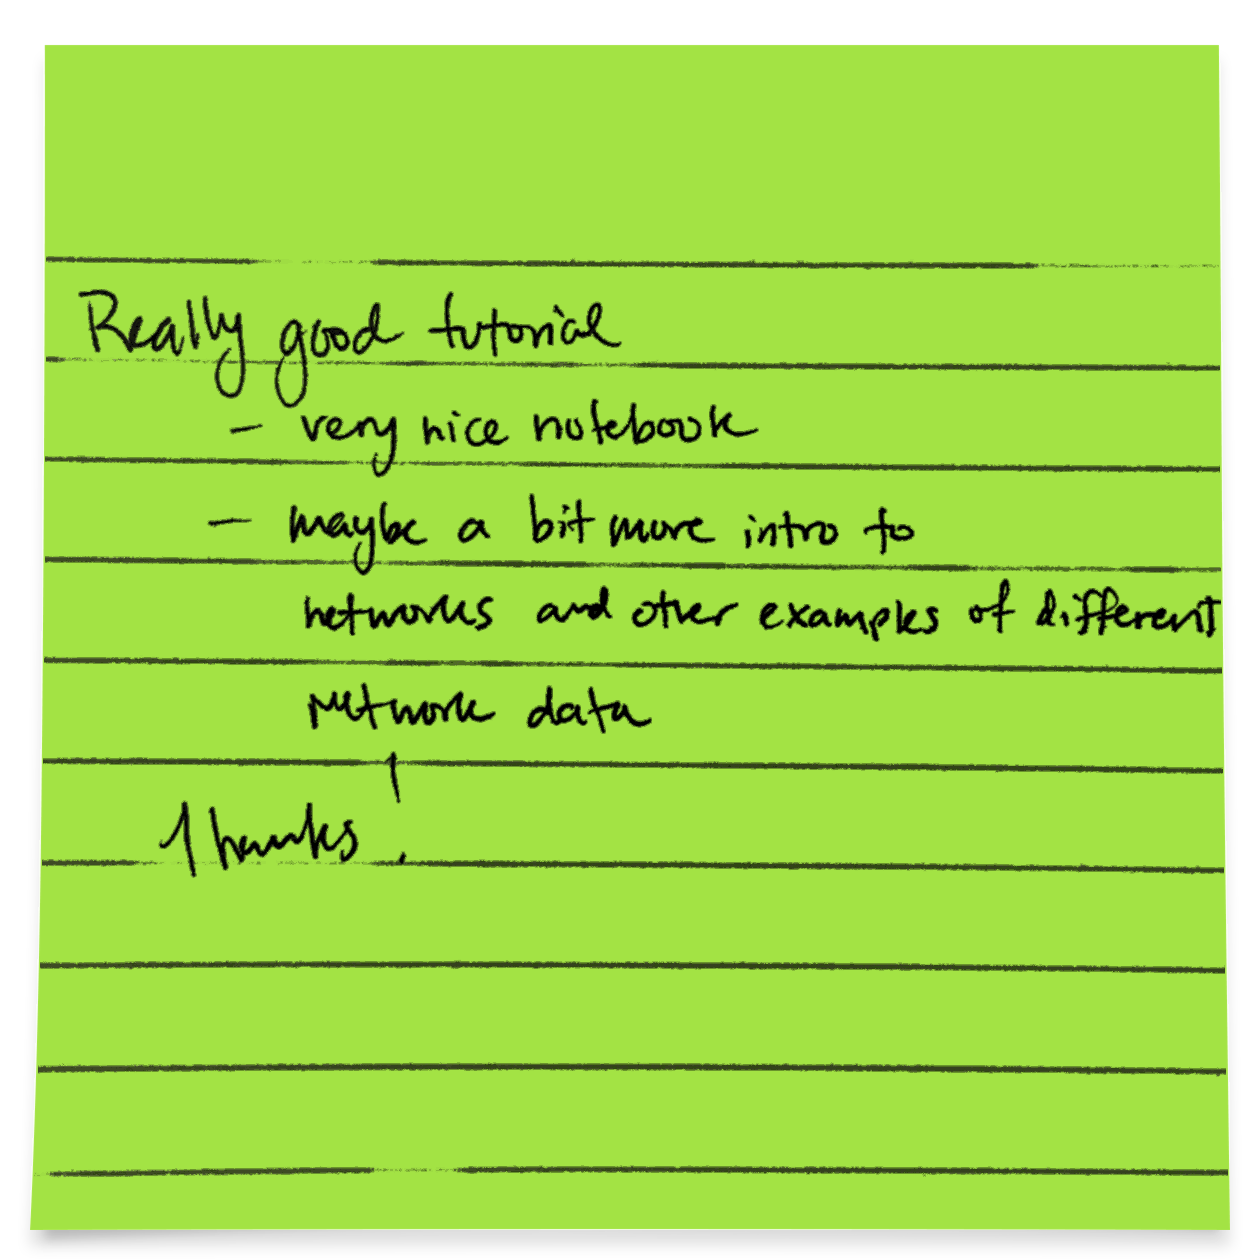 Really good tutorial
- very nice notebook
- maybe a bit more intro to
networks and other examples of different
network data
Thanks!